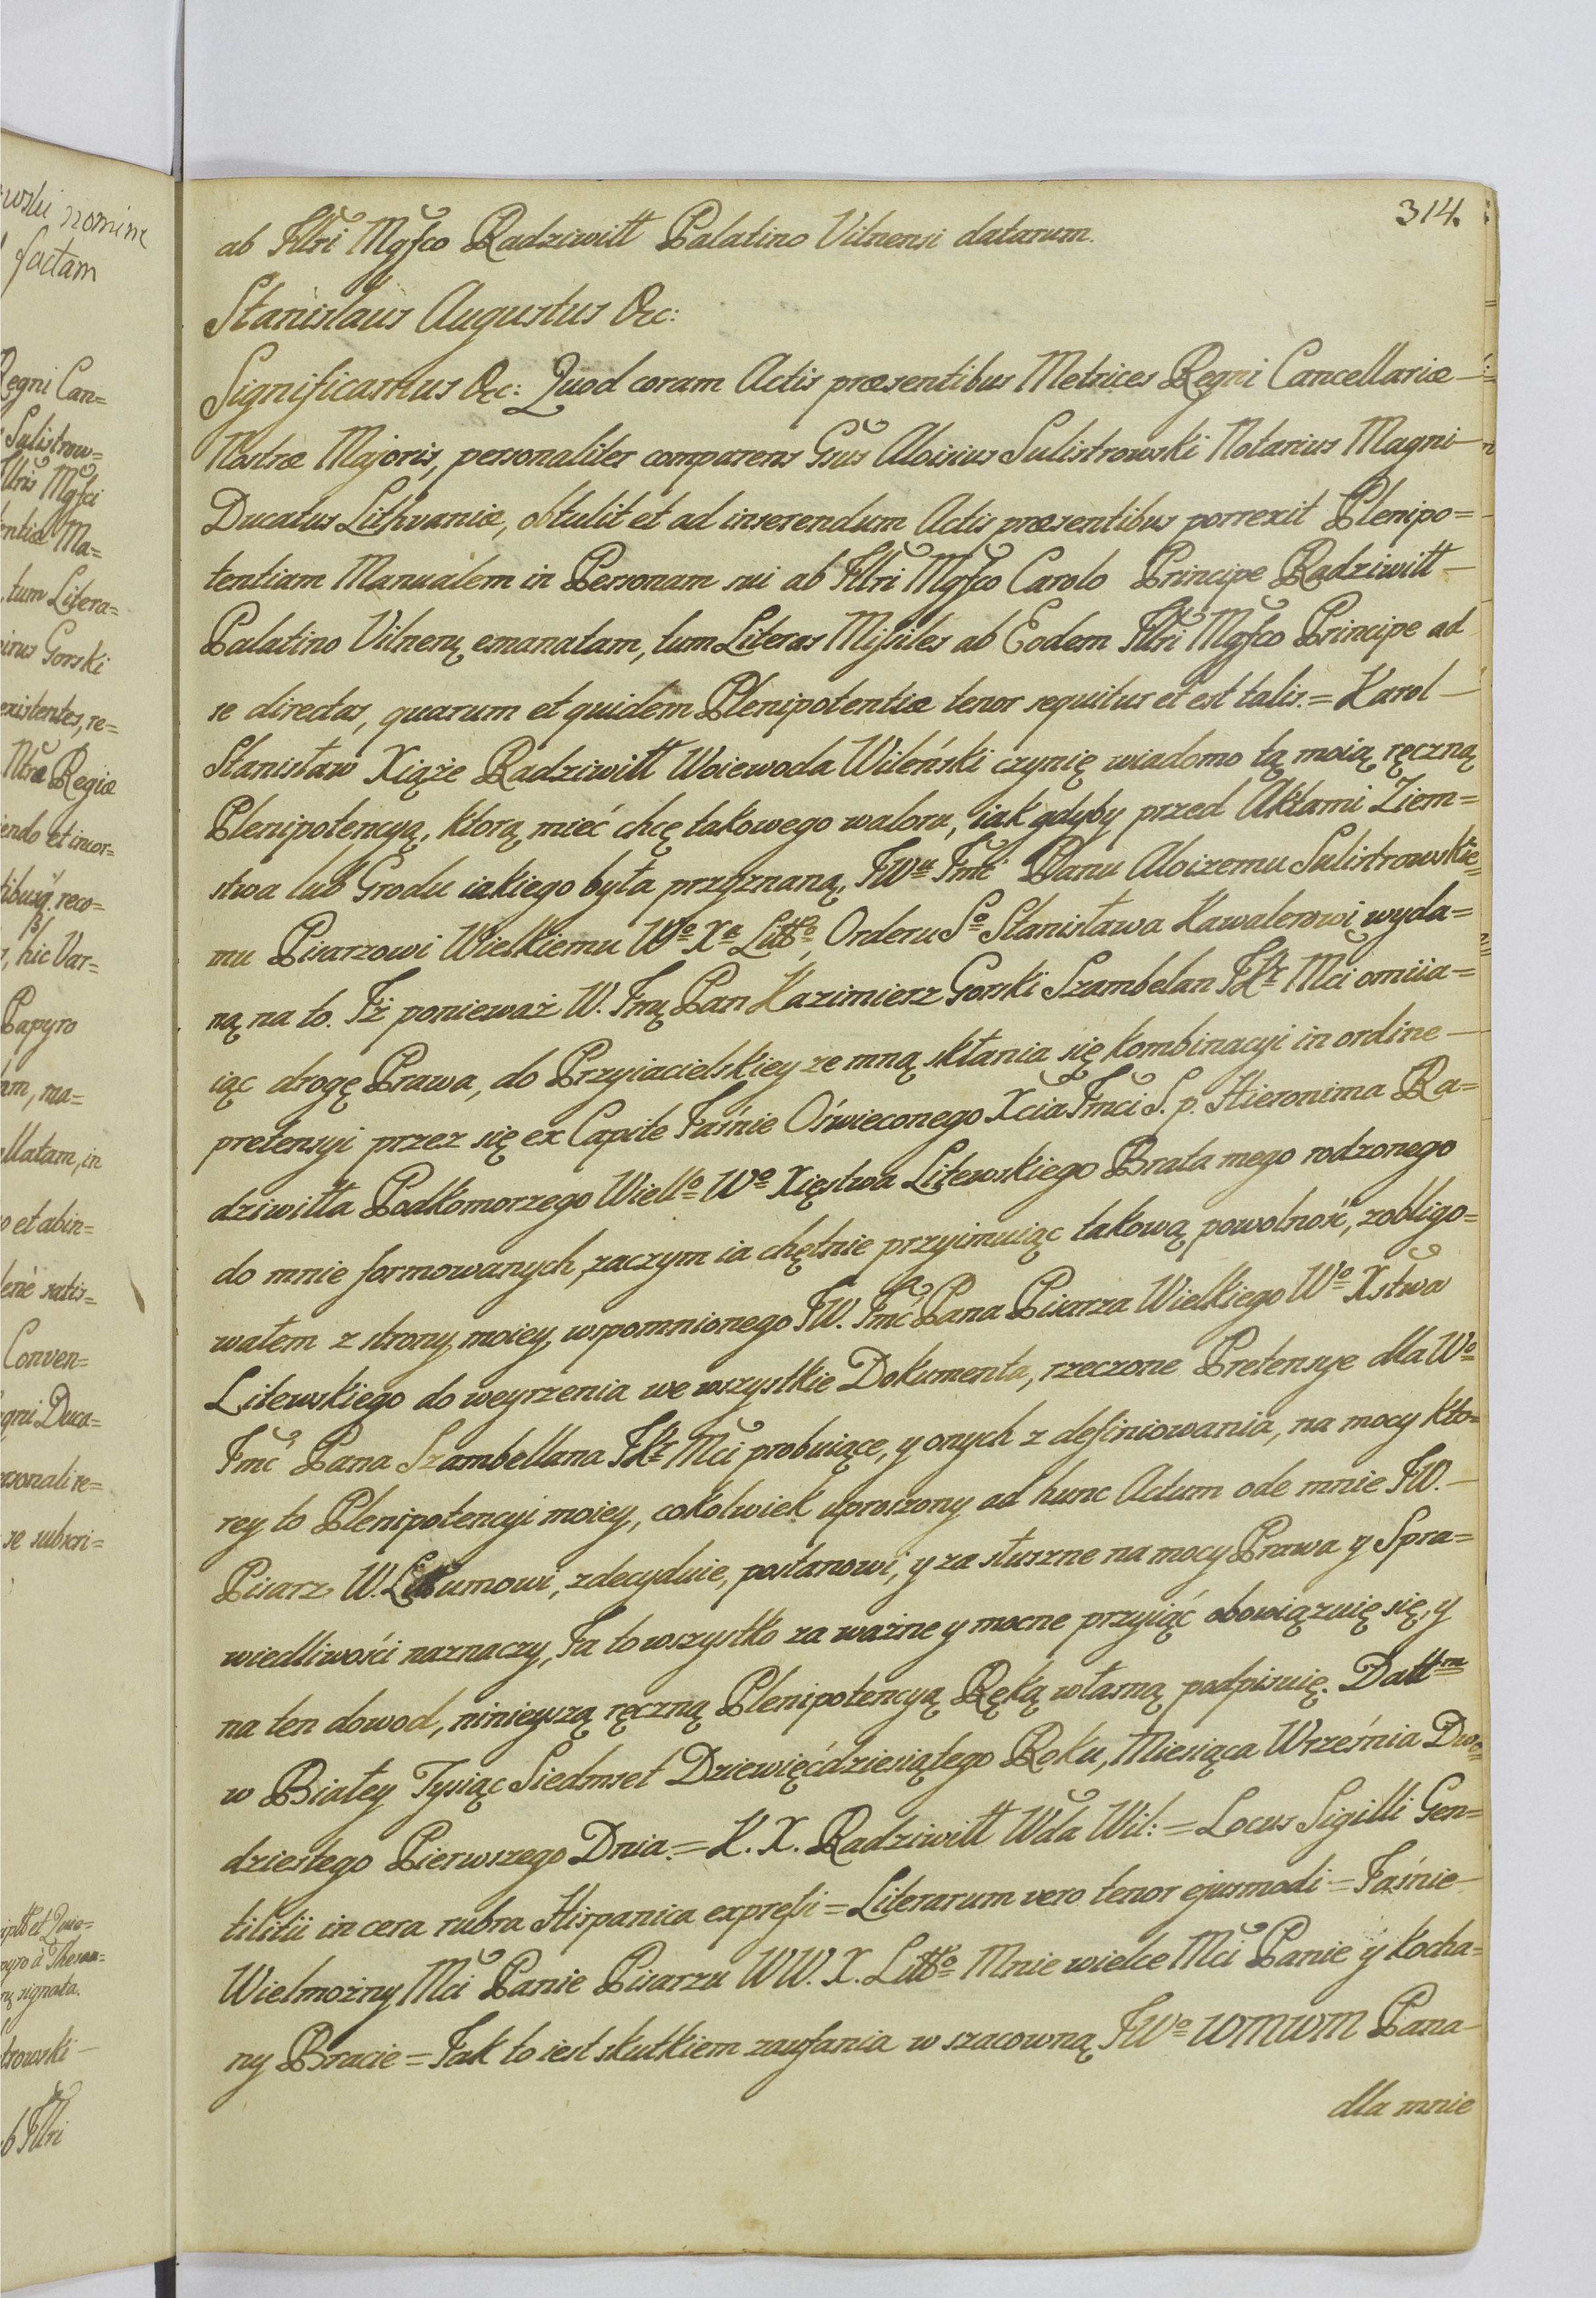 wski nomine
factam
Regni Can=
Sulistrow=
Illris Mgfci
entiæ Ma=
tum Litera=
Gorski
existentes, re=
Ntræ Regiæ
endo et incor=
reco=
hic Var=
Papyro
llatam, in
o et abin=
satis=
Conven=
gni Duca=
ersonali re=
se subscri=
signata.
trowski
b Illri
314.
ab Illri Mgfco Radziwiłł Palatino Vilnensi datarum.
Stanislaus Augustus &c:
Significamus &c: Quod coram Actis præsentibus Metrices Regni Cancellariæ
Nostræ Majoris, personaliter comparens Gsus Aloisius Sulistrowski Notarius Magni
Ducatus Lithvaniæ, obtulit et ad inserendum Actis præsentibus porrexit Plenipo=
tentiam Manualem in Personam sui ab Illri Mgfco Carolo Principe Radziwiłł
Palatino Vilnenş emanatam, tum Literas Missiles ab Eodem Illri Mgfco Principe ad
se directas, quarum et quidem Plenipotentiæ tenor sequitur et est talis. = Karol
Stanisław Xiąże Radziwiłł Woiewoda Wileński czynię wiadomo tą moią ręczną
Plenipotencyą, ktorą mieć chcę takowego waloru, iak gdyby przed Aktami Ziem=
stwa lub Grodu iakiego była przyznaną, JWu Jmć Panu Aloizemu Sulistrowskie=
mu Pisarzowi Wielkiemu Wo Xa Litto, Orderu So Stanisława Kawalerowi, wyda=
ną na to. Iż ponieważ W. Jmş Pan Kazimierz Gorski Szambelan JKr Mci omiia=
iąc drogę Prawa, do Przyiacielskiey ze mną skłania się kombinacyi in ordine
pretensyi przez się ex Capite Jaśnie Oświeconego Xcia Jmci S. p. Hieronima Ra=
dziwiłła Podkomorzego Wiello Wo Xięstwa Litewskiego Brata mego rodzonego
do mnie formowanych, zaczym ia chętnie przyimuiąc takową powolność, zobligo=
wałem z strony moiey, wspomnionego JW. Jmća Pana Pisarza Wielkiego Wo Xstwa
Litewskiego do weyrzenia we wszystkie Dokumenta, rzeczone Pretensye dla Wo
Jmć Pana Szambellana JKr Mci probuiące, y onych z definiowania, na mocy kto=
rey to Plenipotencyi moiey, cokolwiek uproszony ad hunc Actum ode mnie JW.
Pisarz W. Lit umowi, zdecyduie, postanowi, y za słuszne na mocy Prawa y Spra=
wiedliwości naznaczy, Ia to wszystko za ważne y mocne przyiąć obowiązuię się, y
na ten dowod, ninieyszą ręczną Plenipotencyą Ręką własną podpisuię. Dattm
w Białey Tysiąc Siedmset Dziewięćdziesiątego Roku, Miesiąca Września Dwó=
dziestego Pierwszego Dnia. = K. X. Radziwiłł Wda Wil: = Locus Sigilli Gen=
tilitii in cera rubra Hispanica expressi = Literarum vero tenor ejusmodi = Jaśnie
Wielmożny Mci Panie Pisarzu WW. X. Litto Mnie wielce Mci Panie y Kocha=
ny Bracie = Jak to iest skutkiem zaufania w szacowną JWo WMWM Pana
dla mnie